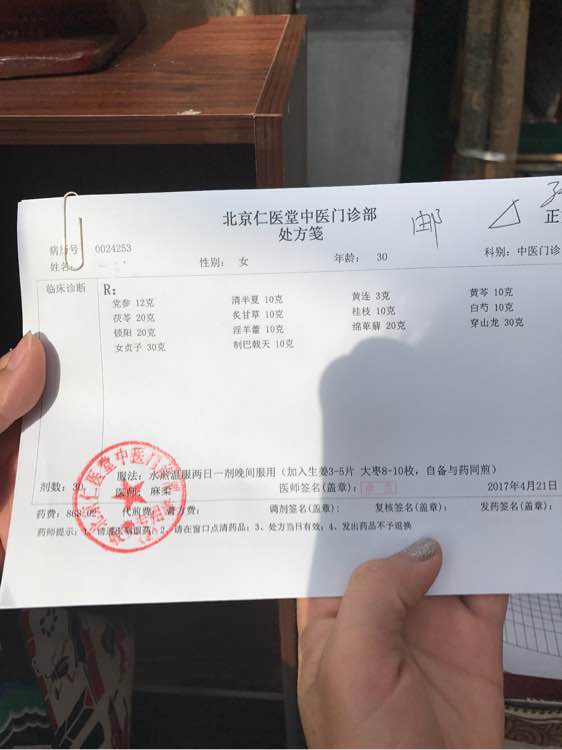 北京仁医堂中医门诊部
处方笺
邮
病历号 0024253
姓名: 性别: 女 年龄: 30 科别: 中医门诊
临床诊断 R:
党参 12克 清半夏 10克 黄连 3克 黄芩 10克
茯苓 20克 炙甘草 10克 桂枝 10克 白芍 10克
锁阳 20克 淫羊藿 20克 绵萆薢 20克 穿山龙 30克
女贞子 30克 制巴戟天 10克
服法: 水煎温服两日一剂晚间服用（加入生姜3-5片 大枣8-10枚，自备与药同煎）
剂数: 30 医师: 麻柔 医师签名(盖章): 2017年4月21日
药费: 代煎费: 调剂签名(盖章): 复核签名(盖章): 发药签名(盖章):
药师提示: 1、请遵医嘱服药; 2、请在窗口点清药品; 3、处方当日有效; 4、发出药品不予退换